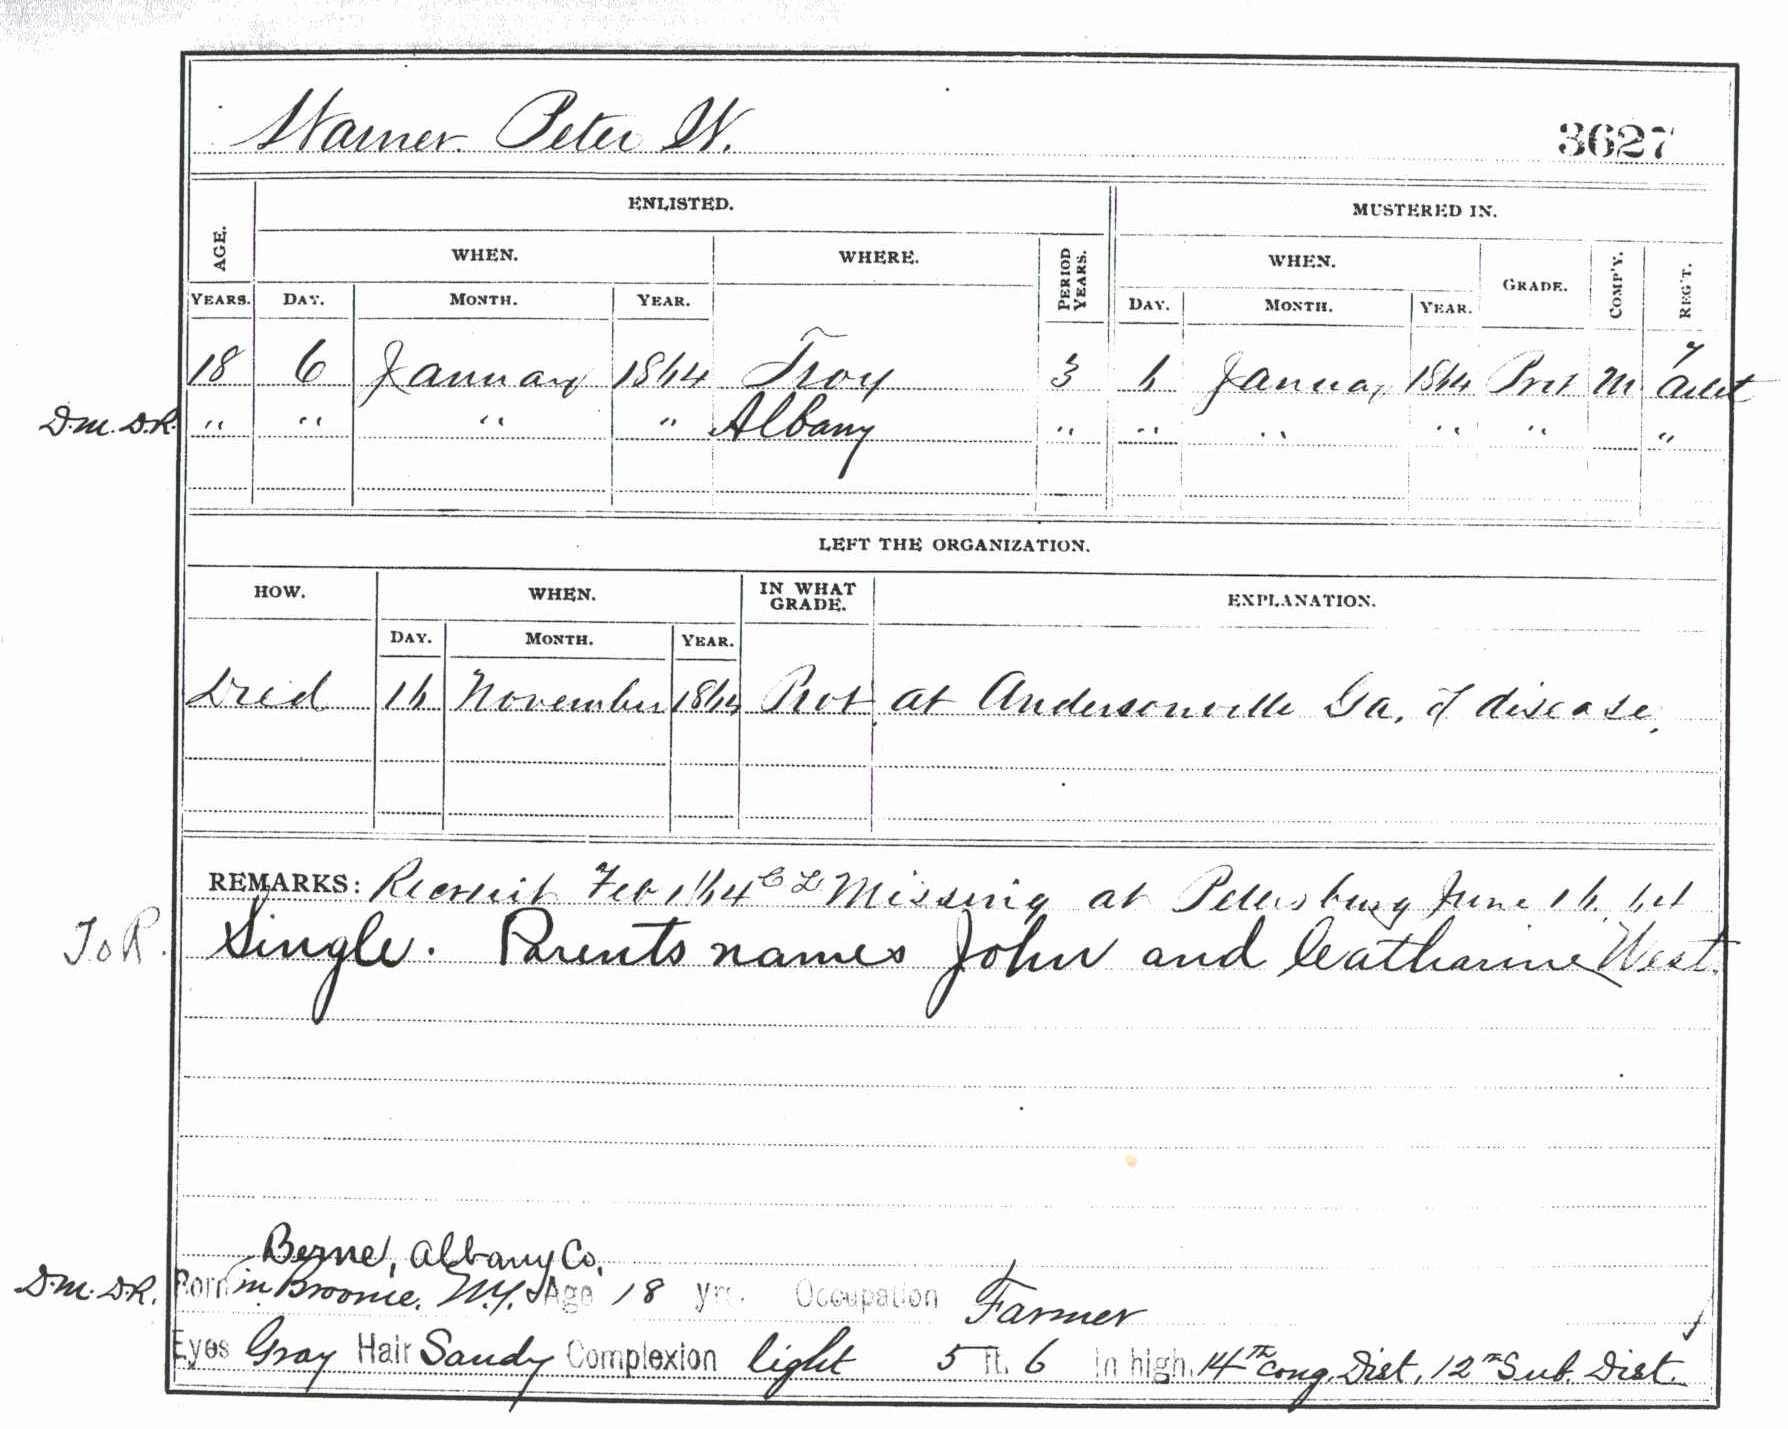 Warner Peter W. 3627
ENLISTED. MUSTERED IN.
AGE. WHEN. WHERE. PERIOD YEARS. WHEN. GRADE. COMP'Y. REG'T.
YEARS. DAY. MONTH. YEAR. DAY. MONTH. YEAR.
18 6 January 1864 Troy 3 6 January 1864 Prvt M 7 Artil
D.M.D.R. " " " " Albany " " " " " "
LEFT THE ORGANIZATION.
HOW. WHEN. IN WHAT GRADE. EXPLANATION.
DAY. MONTH. YEAR.
Died 16 November 1864 Prvt at Andersonville Ga. of disease.
REMARKS: Recruit Feb 1864 Missing at Petersburg June 16.
T.o.R. Single. Parents names John and Catharine West.
Berne, Albany Co.
D.M.D.R. Born in Broome, N.Y. Age 18 yrs. Occupation Farmer
Eyes Gray Hair Sandy Complexion light 5 ft. 6 in high. 14th Cong. Dist. 12th Sub. Dist.